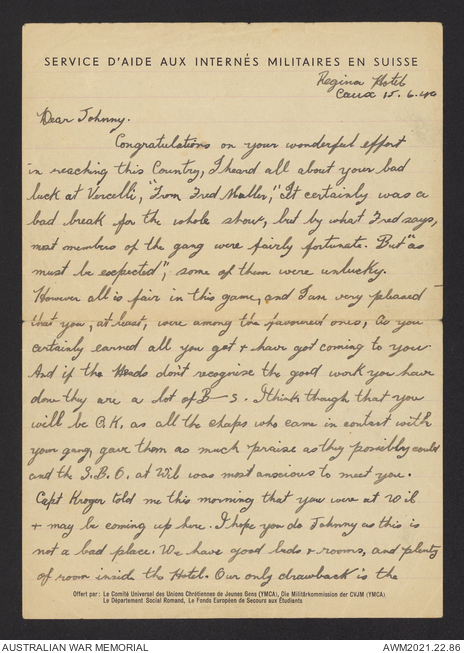 SERVICE D'AIDE AUX INTERNÉS MILITAIRES EN SUISSE
Regina Hotel
Caux 15.6.44
Dear Johnny.
Congratulations on your wonderful effort
in reaching this Country, I heard all about your bad
luck at Vercelli, "From Fred Maller," It certainly was a
bad break for the whole show, but by what Fred says,
most members of the gang were fairly fortunate. But "as
must be expected", some of them were unlucky.
However all is fair in this game, and I am very pleased
that you, at least, were among the favoured ones, As you
certainly earned all you get + have got coming to you.
And if the Heads don't recognise the good work you have
done they are a lot of B—s. I think though that you
will be O.K. as all the chaps who came in contact with
your gang, gave them as much praise as they possibly could
and the S.B.O. at Wil was most anxious to meet you.
Capt Kroger told me this morning that you were at Wil
+ may be coming up here. I hope you do Johnny as this is
not a bad place. We have good beds + rooms, and plenty
of room inside the Hotel. Our only drawback is the
Offert par: Le Comité Universel des Unions Chrétiennes de Jeunes Gens (YMCA), Die Militärkommission der CVJM (YMCA)
Le Département Social Romand, Le Fonds Européen de Secours aux Étudiants
AUSTRALIAN WAR MEMORIAL
AWM2021.22.86